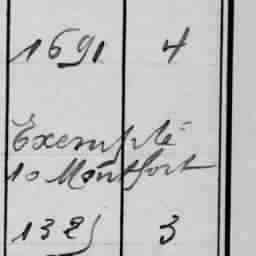 1691 4
Exempté
10 Montfort
1325 3